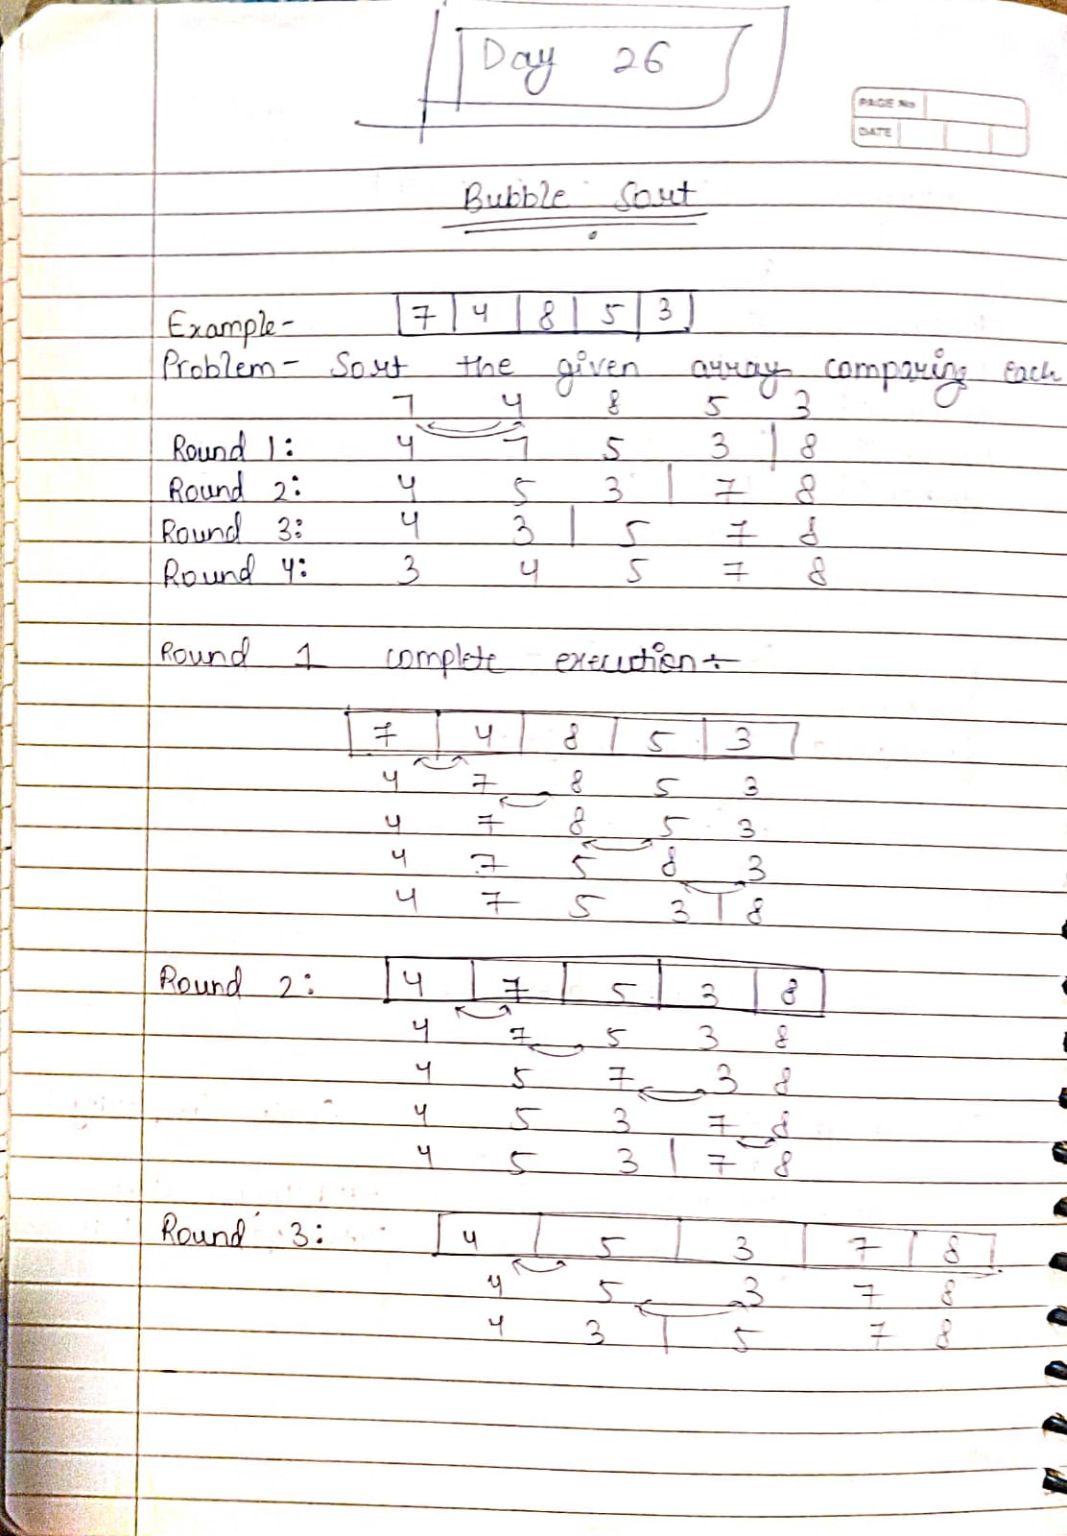 Day 26
PAGE No
DATE
Bubble Sort
Example- 7 4 8 5 3
Problem- Sort the given array comparing each
7 4 8 5 3
Round 1: 4 7 5 3 | 8
Round 2: 4 5 3 | 7 8
Round 3: 4 3 | 5 7 8
Round 4: 3 4 5 7 8
Round 1 complete execution÷
7 4 8 5 3
4 7 8 5 3
4 7 8 5 3
4 7 5 8 3
4 7 5 3 | 8
Round 2: 4 7 5 3 8
4 7 5 3 8
4 5 7 3 8
4 5 3 7 8
4 5 3 | 7 8
Round 3: 4 5 3 7 8
4 5 3 7 8
4 3 | 5 7 8